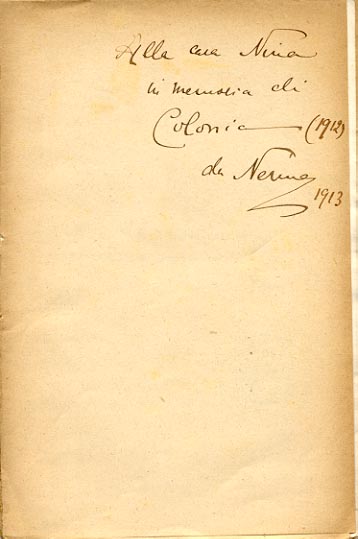 Alla cara Nina
in memoria di
Colonia (1912)
da Nerina
1913